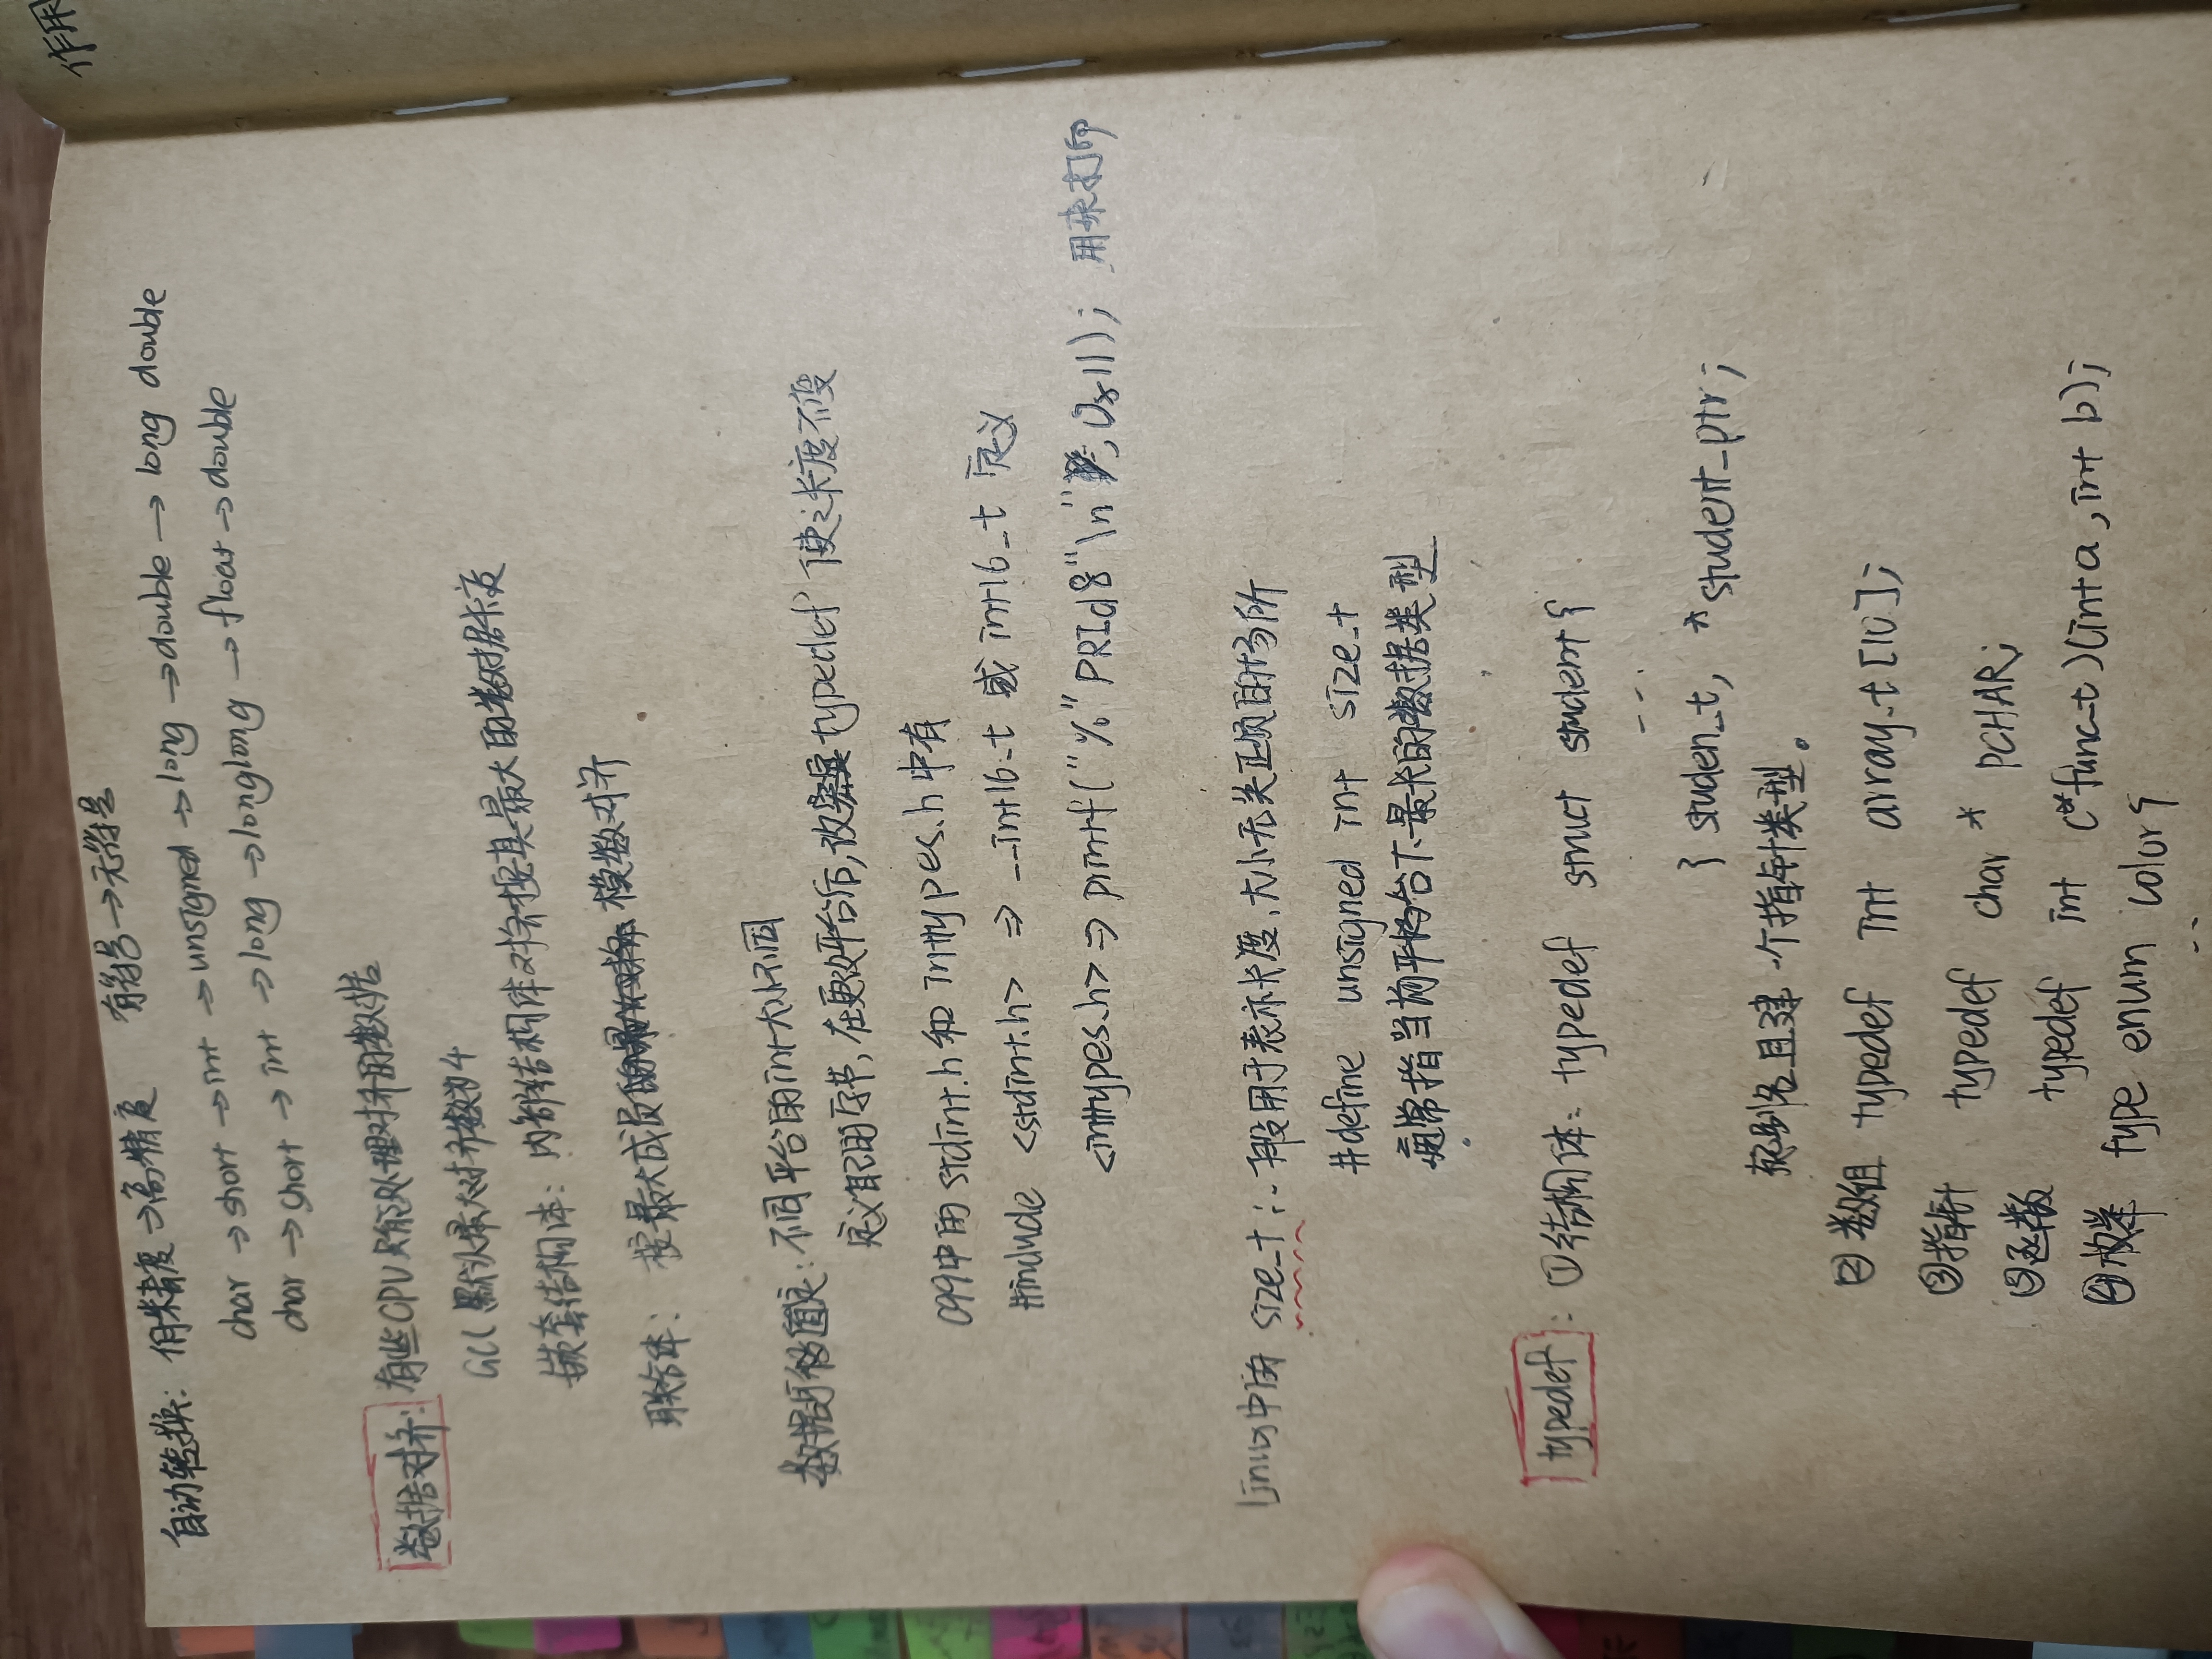 作用
自动转换: 低精度→高精度 有符号→无符号
char→short→int→unsigned→long→double→long double
char→short→int→long→longlong→float→double
数据对齐: 有些CPU只能处理对齐的数据
GCC默认最大对齐数为4
嵌套结构体: 内部结构体对齐按其最大的数据长度
联合体: 按最大成员 模数对齐
数据 : 不同平台的int大小不同
定义 的字节,在更改平台后,改 typedef 使之长度不变
C99中用stdint.h和inttypes.h中有
#include <stdint.h> ⇒ __int16_t 或 int16_t 定义
<inttypes.h> ⇒ printf("%"PRId8"\n", 0x11); 用来打印
Linux中用 size_t: 一般用于表示长度、大小无关正负的场所
#define unsigned int size_t
通常指当前平台下最长的数据类型
typedef: ①结构体: typedef struct student{
...
} studen_t, *student_ptr;
起别名且建一个指针类型。
② 数组 typedef int array_t[10];
③指针 typedef char * PCHAR;
③函数 typedef int (*func_t)(int a, int b);
④枚举 type enum color{
..